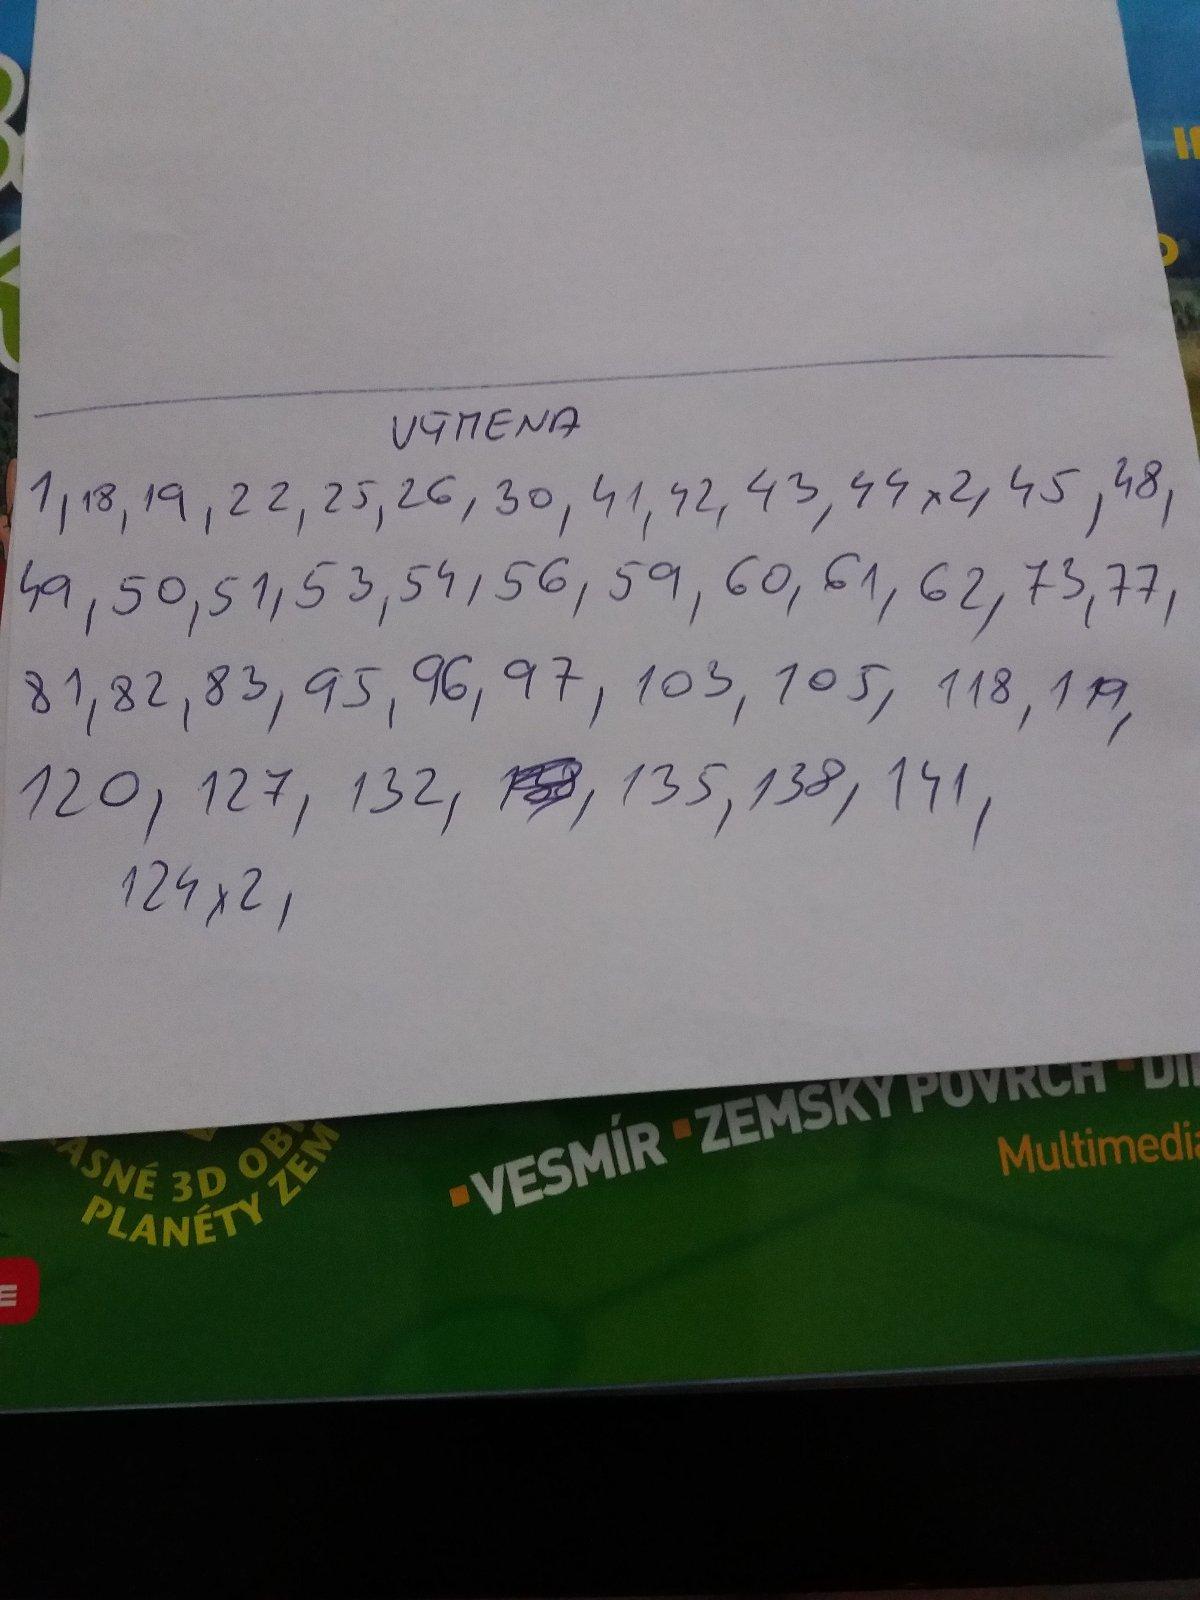 VÝMENA
1, 18, 19, 22, 25, 26, 30, 41, 42, 43, 44 x2, 45, 48,
49, 50, 51, 53, 54, 56, 59, 60, 61, 62, 73, 77,
81, 82, 83, 95, 96, 97, 103, 105, 118, 119,
120, 127, 132, , 135, 138, 141,
124x2,
ASNÉ 3D OB
PLANÉTY ZEM
▪VESMÍR ▪ZEMSKÝ POVRCH ▪DI
Multimedia